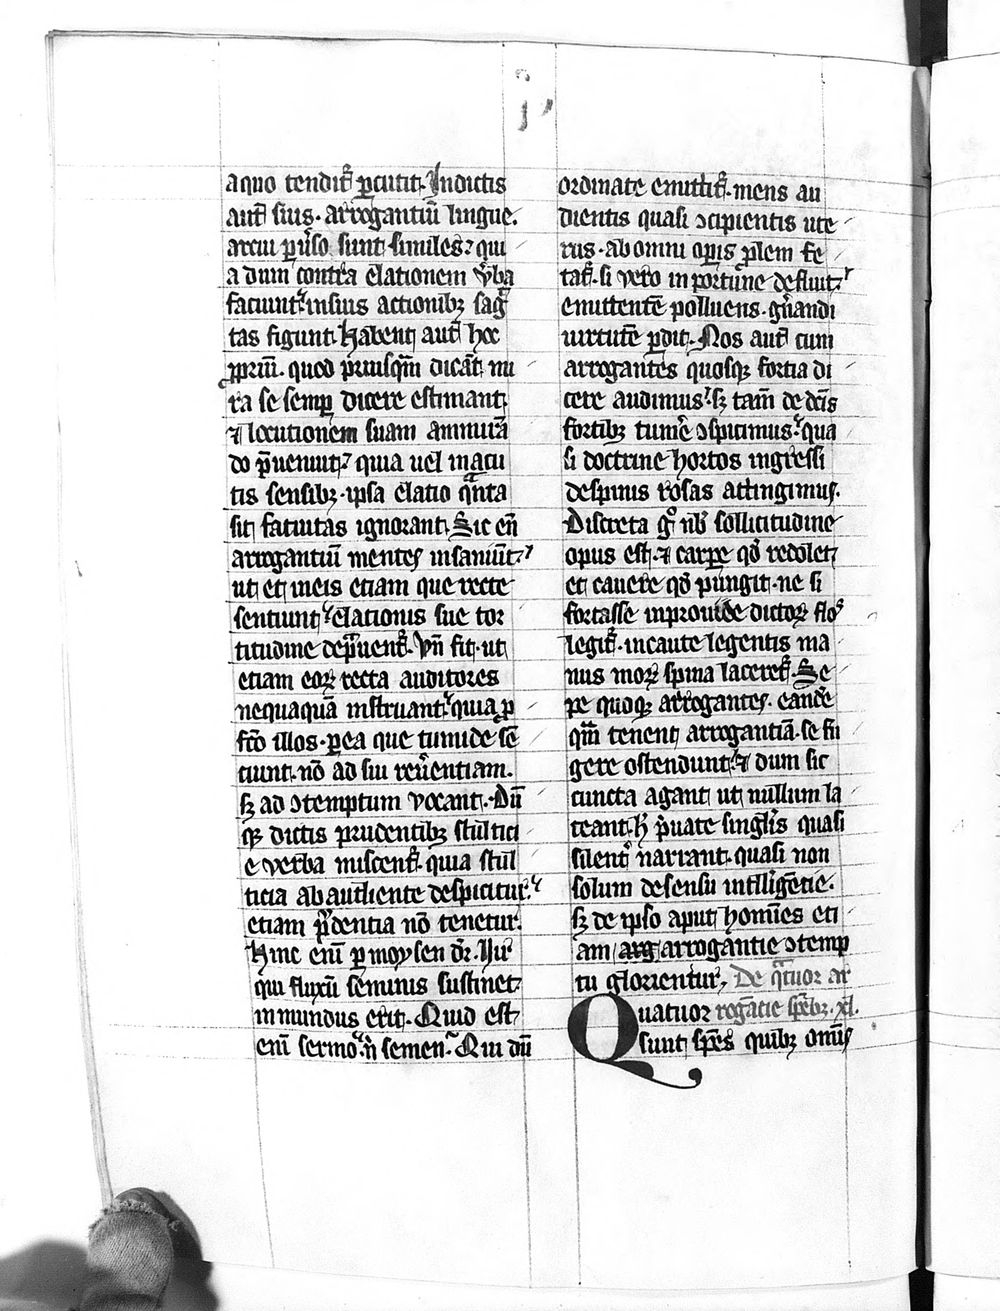 j
a quo tendit᷑ ꝑcutit. In dictis
aut̄ suis. arrogantiū lingue.
arcui ꝑuͥso sunt similes? qui
a dum contra elationem v̾ba
faciunt. in suis actionibꝫ sagͥt
tas figunt. Habent aut̄ hoc
ꝓpriū. quod priusqͣm dicāt mi
ra se semꝑ dicere estimant
⁊ locutionem suam ammirā
do p̄ueniunt? quia uel in acu
tis sensibꝫ. ipsa elatio qͣnta
sit fatuitas ignorant. Sic em̄
arrogantiū mentes insaniūt?
ut et in eis etiam que recte
sentiunt. elationis sue tor
titudine depͣuent᷑. Vn̄ fit. ut
etiam eoꝝ recta auditores
nequaquā instruant. quia ꝓ
fc̄o illos. ꝑ ea que tumide sē
ciunt. nō ad sui reu̾entiam.
sꝫ ad ↄtemptum vocant. Dū
qꝫ dictis prudentibꝫ stultici
e verba miscent᷑. quia stul
ticia ab audiente despicitur.
etiam pͥdentia nō tenetur.
Hinc em̄ ꝑ moysen dr̄. Vir
qui fluxū seminis sustinet
inmundus erit. Quid est
em̄ sermo. nͥ semen. Qui dū
ordinate emittit᷑. mens au
dientis quasi ↄcipientis ute
rus. ab omni oꝑis ꝓlem fe
tat᷑. si vero inportune defluit?
emittentē polluens. gn̄andi
uirtutē ꝑdit. Nos aut̄ cum
arrogantes quosqꝫ fortia di
cere audimus. sꝫ tam̄ de dc̄is
fortibꝫ tumē ↄspicimus. qua
si doctrine hortos ingressi
de spinis rosas attingimus.
Discreta gͦ nb̄ sollicitudine
opus est. ⁊ carpe qd̾ redolet
et cauere qd̾ pungit. ne si
fortasse inprouide dictoꝝ floˢ
legit᷑. incaute legentis ma
nus moꝝ spina laceret᷑. Se
pe quoqꝫ arrogantes. eande
qͣm tenent arrogantiā. se fu
gere ostendunt. ⁊ dum sic
cuncta agant ut nullum la
teant. hͥ pͥuate singl̾is quasi
silent᷑ narrant. quasi non
solum de sensu intlligētie.
sꝫ de ipso aput homīes eti
am arg arrogantie ↄtemp
tu glorientur. De qͣtuor ar
Quatuor rogātie spēbꝫ. xl.
sunt spēs quibꝫ omīs